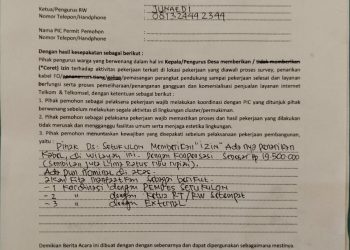 Ketua/Pengurus RW : JUNAEDI
Nomor Telepon/Handphone : 081324492394
Nama PIC Permit Pemohon :
Nomor Telepon/Handphone :
Dengan hasil kesepakatan sebagai berikut :
Pihak pengurus warga yang berwenang dalam hal ini Kepala/Pengurus Desa memberikan / tidak memberikan
(*Coret) izin terhadap aktivitas pekerjaan terkait di lokasi pekerjaan yang diawali proses survey, penarikan
kabel FO/penanaman tiang/galian/pemasangan perangkat pendukung sampai pekerjaan selesai dan layanan
berfungsi serta proses pemeliharaan/penanganan gangguan dan komersialisasi penjualan layanan internet
Telkom & Telkomsel, dengan ketentuan sebagai berikut :
1. Pihak pemohon sebagai pelaksana pekerjaan wajib melakukan koordinasi dengan PIC yang ditunjuk pihak
berwenang sebelum melakukan segala aktivitas di lingkungan/lokasi pekerjaan.
2. Pihak pemohon sebagai pelaksana pekerjaan wajib memastikan hasil dari pekerjaan yang dilakukan
tidak merusak dan mengganggu fasilitas umum serta menjaga estetika lingkungan.
3. Pihak pemohon menuntaskan kewajiban yang disepakati sebelum pelaksanaan pekerjaan pembangunan,
yaitu :
Pihak Ds. Setukulon Memberikan "IZIN" Adanya Penarikan
Kabel, di wilayah ini. Dengan Kompensasi Sebesar Rp 19.500.000
(Sembilan Lima Ratus ribu rupiah).
Ada pun nominal di atas.
akan Kita manfaatkan sebagai berikut.
- 1 Koordinasi dengan PEMDES SETUKULON
- 2 " dengan Ketua RT/RW Setempat
- 3 " dengan EXTERNAL
Demikian Berita Acara ini dibuat dengan dengan sebenarnya dan dapat dipergunakan sebagaimana mestinya